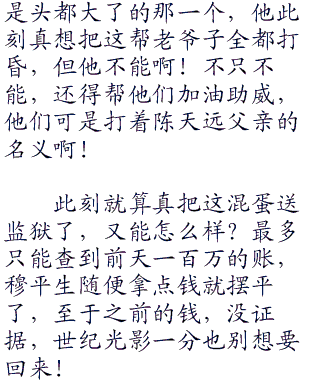 是头都大了的那一个，他此
刻真想把这帮老爷子全都打
昏，但他不能啊！不只不
能，还得帮他们加油助威，
他们可是打着陈天远父亲的
名义啊！
此刻就算真把这混蛋送
监狱了，又能怎么样？最多
只能查到前天一百万的账，
穆平生随便拿点钱就摆平
了，至于之前的钱，没证
据，世纪光影一分也别想要
回来！